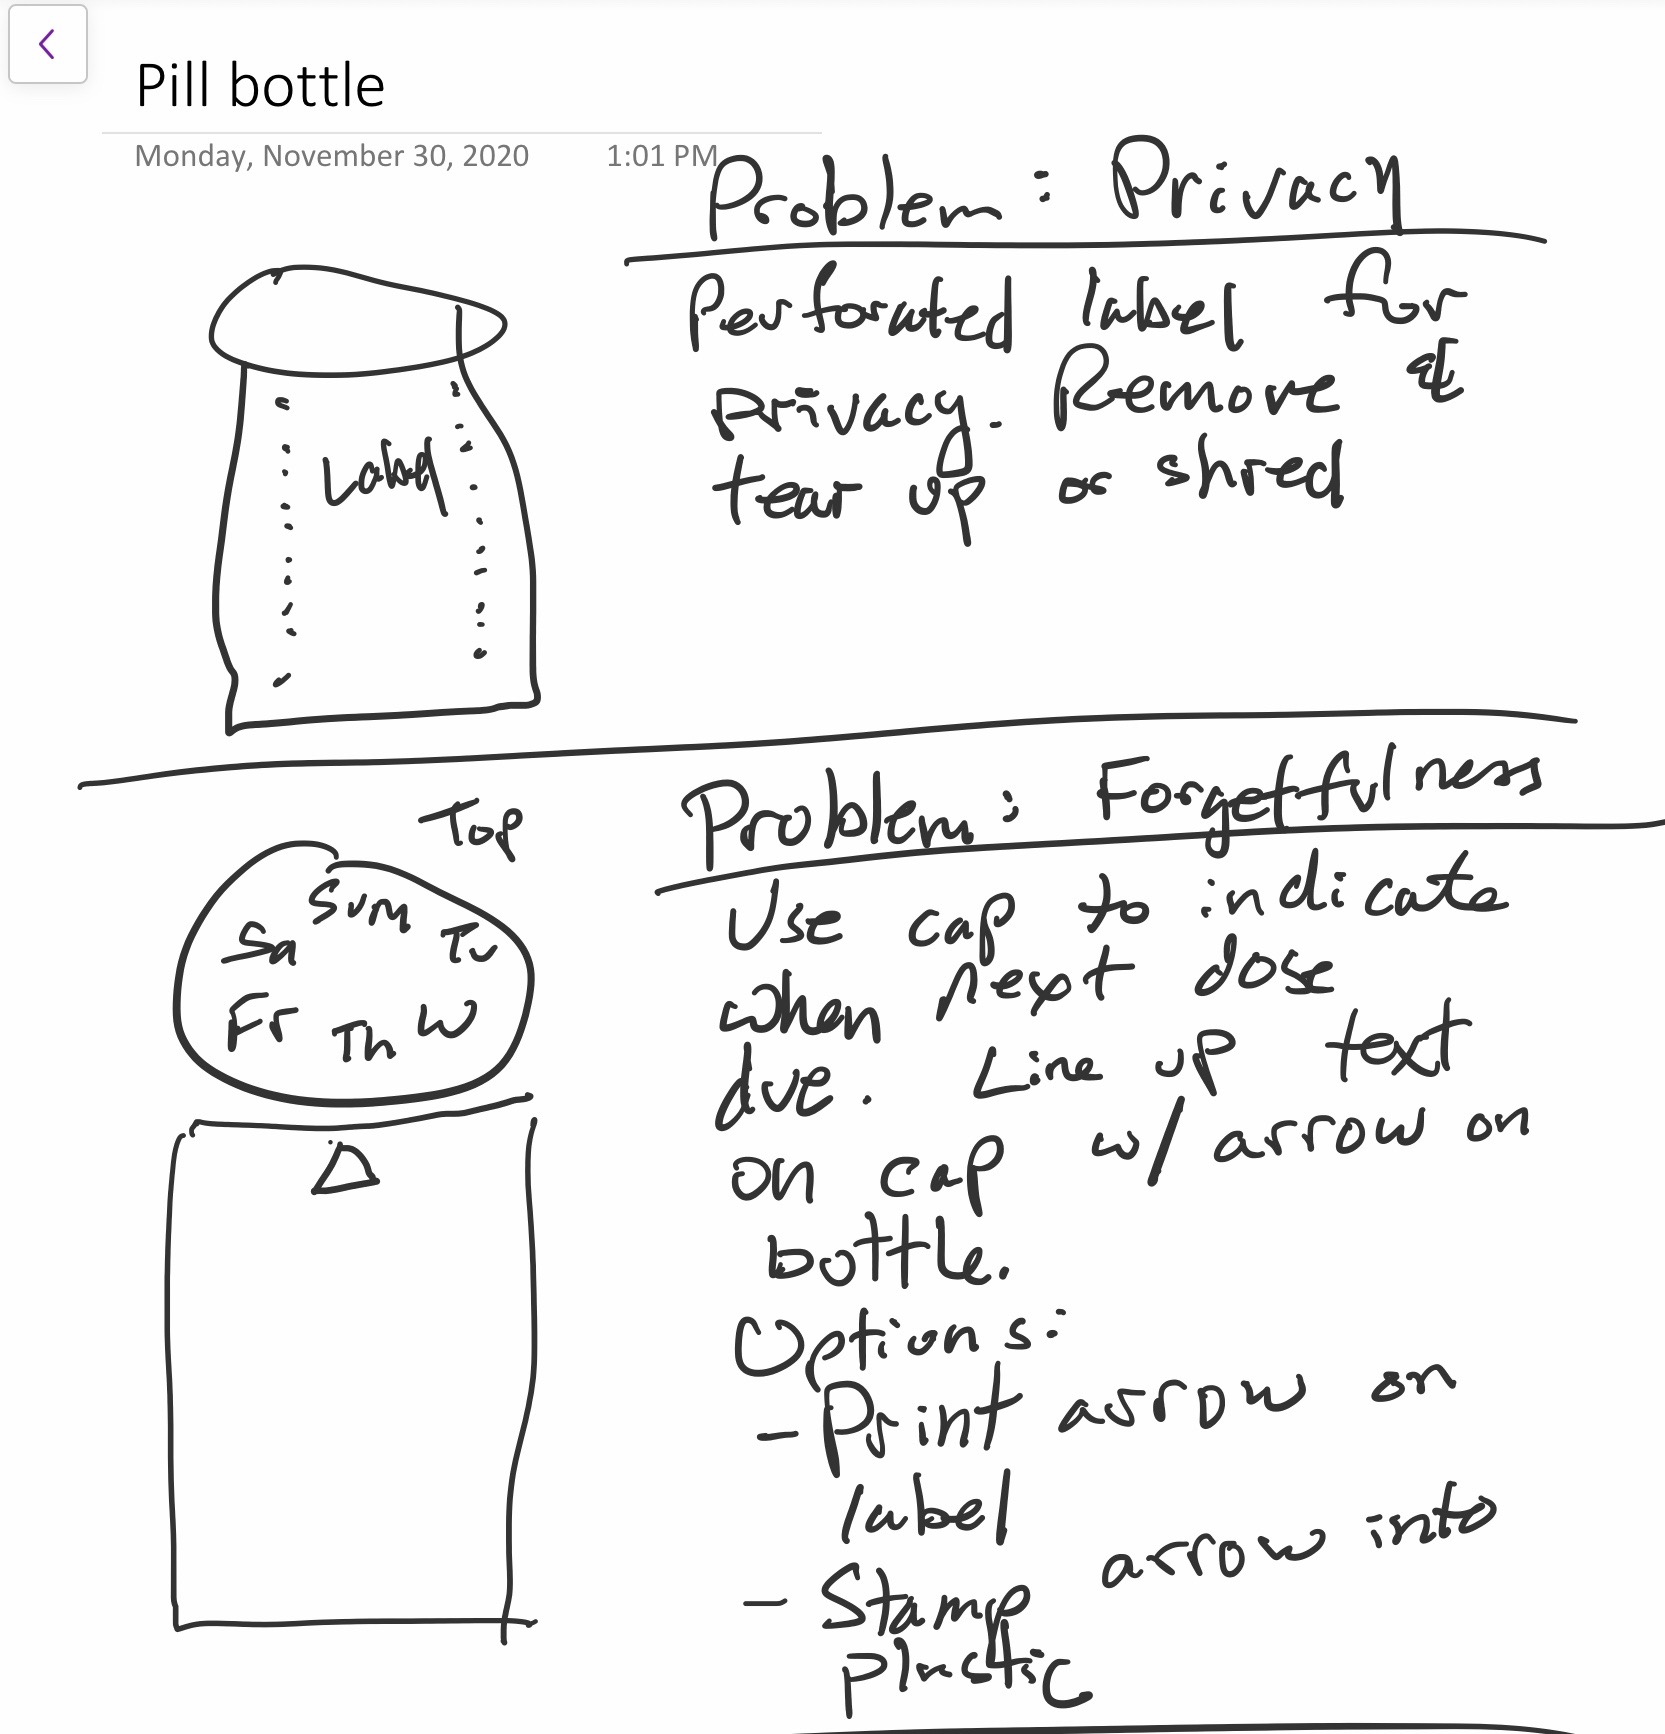 Pill bottle
Monday, November 30, 2020 1:01 PM
Problem: Privacy
Perforated label for
privacy. Remove &
tear up or shred
Label
Problem: Forgetfulness
Use cap to indicate
when next dose
due. Line up text
on cap w/ arrow on
bottle.
Options:
- Print arrow on
label
- Stamp arrow into
plastic
Top
Sum
Sa Tu
Fr Th W